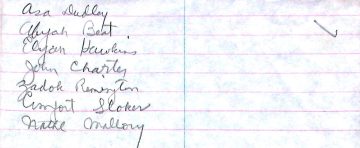 Asa Dudley
Abijah Bent
Elijah Hawkins
John Charter
Zadok Remington
Comfort Stoker
Nathl Mallory